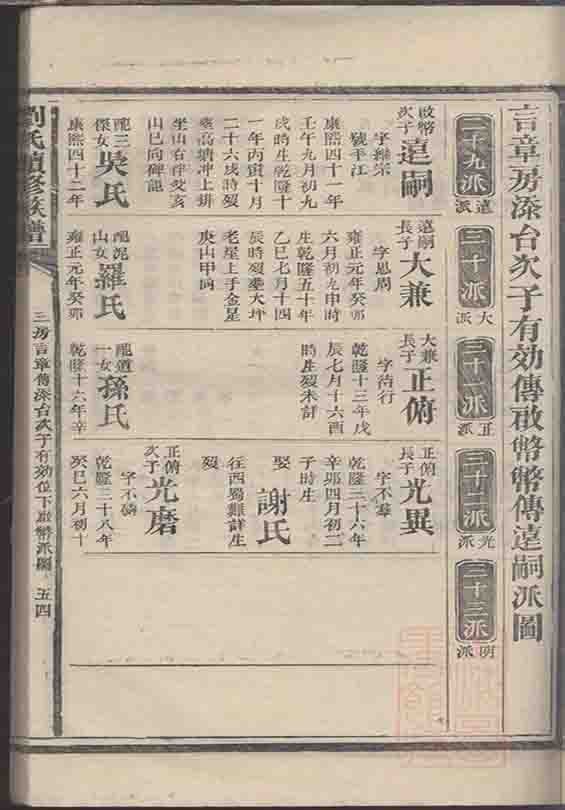 言章房添台次子有効傳啟幣幣傳遠嗣派圖
二十九派
遠派
三十派
大派
三十一派
正派
三十二派
光派
三十三派
明派
啟幣次子遠嗣
字聯宗
號平江
康熙四十一年
壬午九月初九
戌時生乾隆十
一年丙寅十月
二十六戌時歿
塟高塘冲上排
坐山右伴艾亥
山巳向碑記
配三傑女吳氏
康熙四十二年
遠嗣長子大兼
字思周
雍正元年癸卯
六月初九申時
生乾隆五十年
乙巳七月十四
辰時歿塟大坪
老屋上手金星
庚山甲向
配沘山女羅氏
雍正元年癸卯
大兼長子正俯
字待行
乾隆十三年戊
辰七月十六酉
時生歿未詳
配道一女孫氏
乾隆十六年辛
正俯長子光異
字不羣
乾隆三十六年
辛卯四月初二
子時生
娶謝氏
往西蜀難詳生
歿
正俯次子光磨
字不磷
乾隆三十八年
癸巳六月初十
劉氏續修族譜
三房言章傳添台次子有効位下啟幣派圖
五四